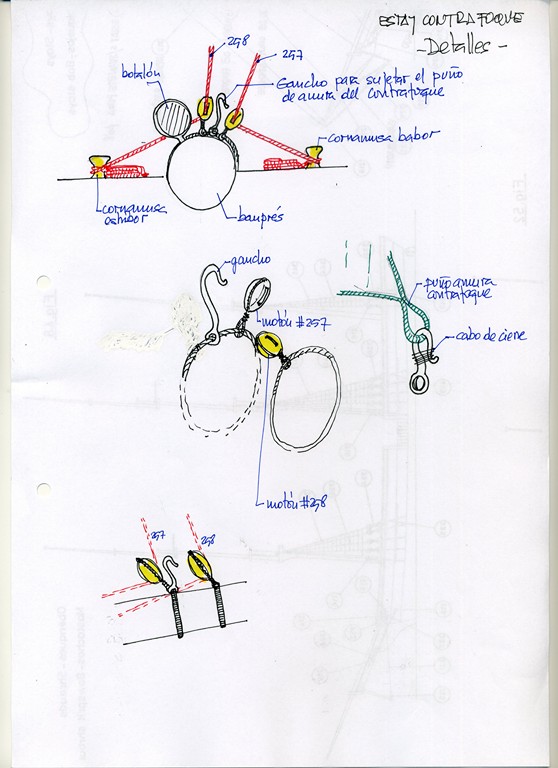 ESTAY CONTRAFOQUE
- Detalles -
258
257
botalón
Gancho para sujetar el puño
de amura del contrafoque
cornamusa babor
cornamusa
estribor
bauprés
gancho
puño amura
contrafoque
motón #257
cabo de cierre
motón #258
257
258